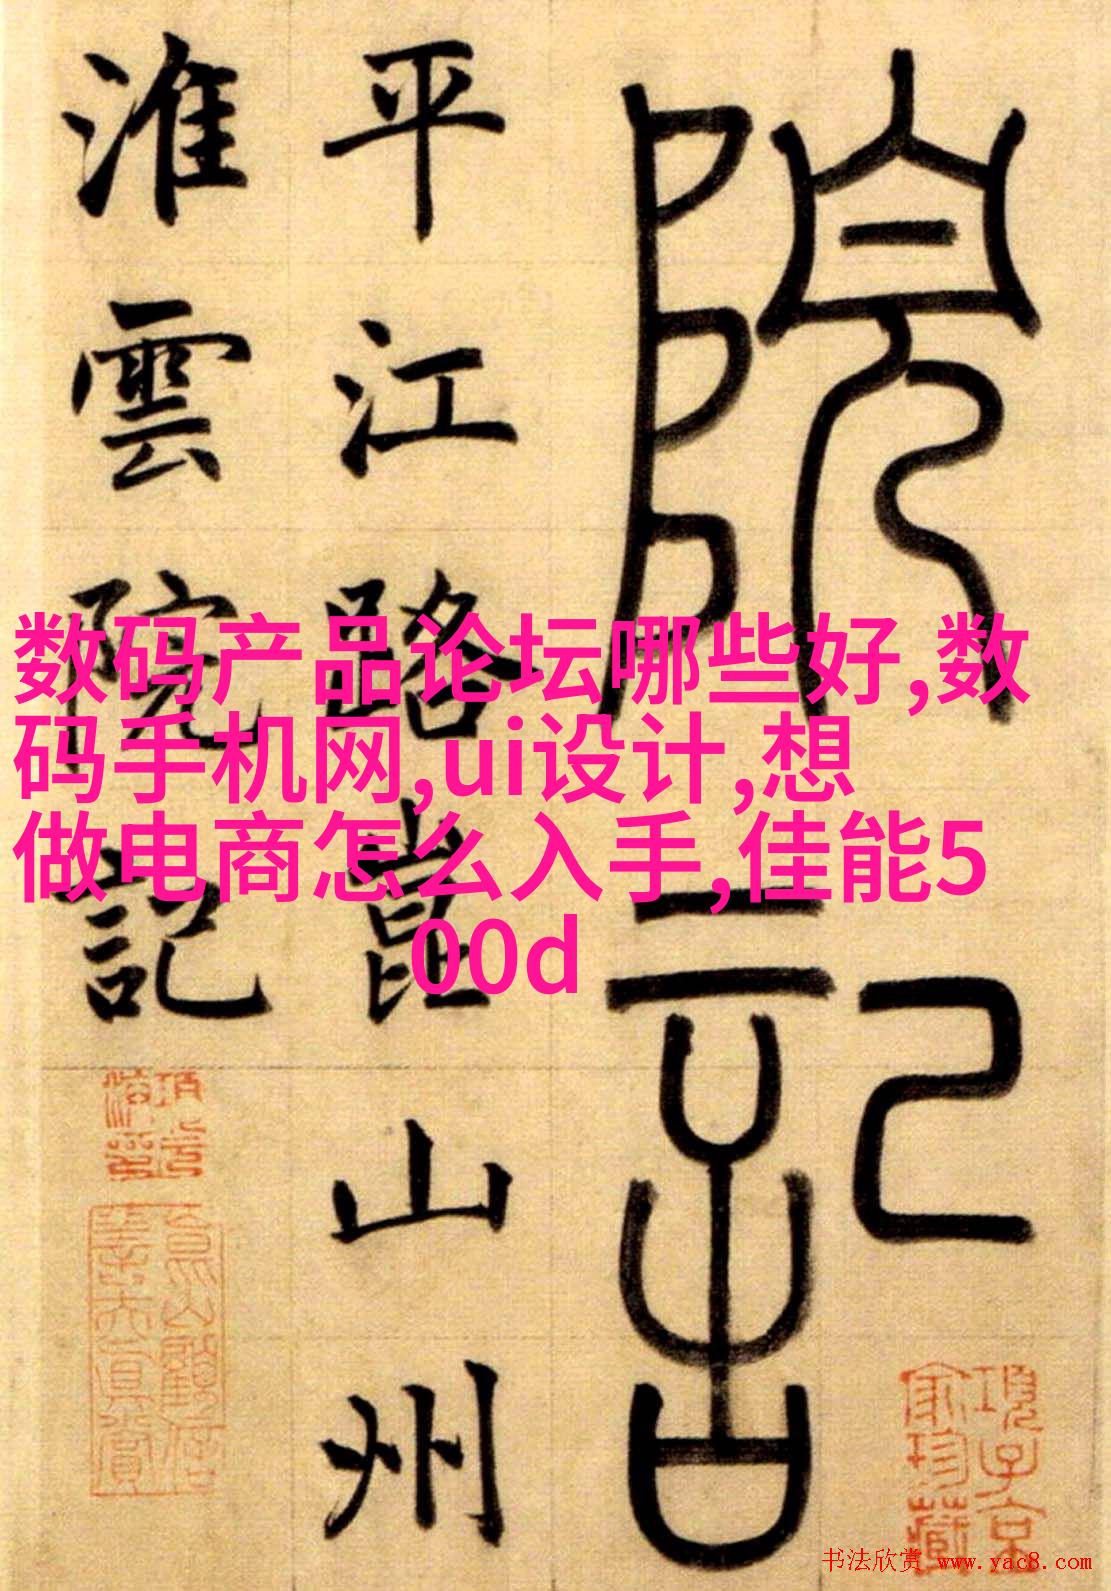 院記
平江路崑山州
淮雲院記
数码产品论坛哪些好,数
码手机网,ui设计,想
做电商怎么入手,佳能5
00d
項子京
家珍藏
书法欣赏 www.yac8.com